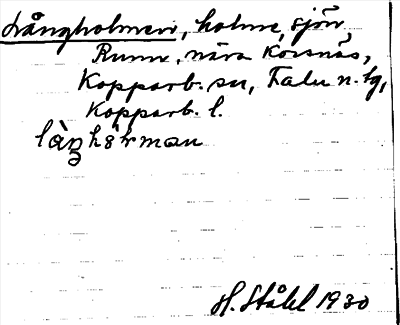 Långholmen, holme, sjön
Runn, nära Korsnäs,
Kopparb. sn, Falu n. tg,
Kopparb. l.
làŋhɵ̀rman
H. Ståhl 1930